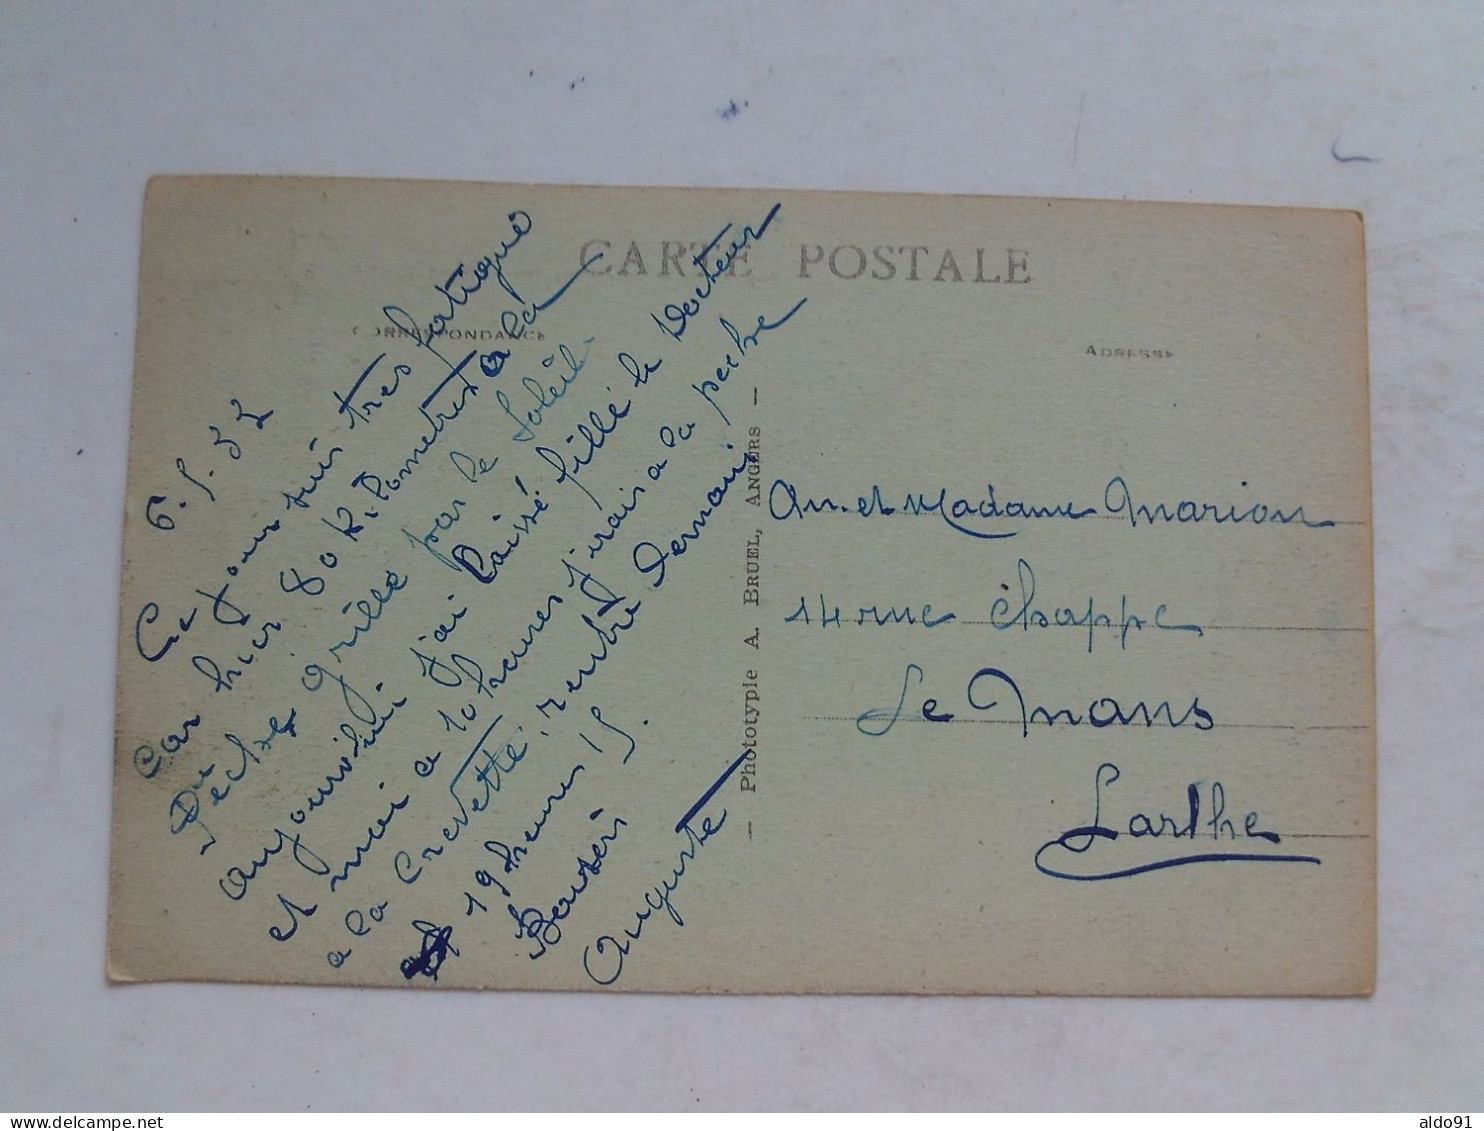 CARTE POSTALE
CORRESPONDANCE
ADRESSE
6.5.32
Ce jour suis très fatigué
car hier 80 kilometres a la
Pèche grillé par le Soleil
aujourd'hui j'ai laissé fillé le Docteur
et moi a 10 heures j'irais a la peche
a la Crevette, rentré demain
19 heures 15.
Baisers
Auguste
— Phototypie A. BRUEL, ANGERS —
Mr. et Madame Marion
14 rue Chappe
Le Mans
Sarthe
aldo91